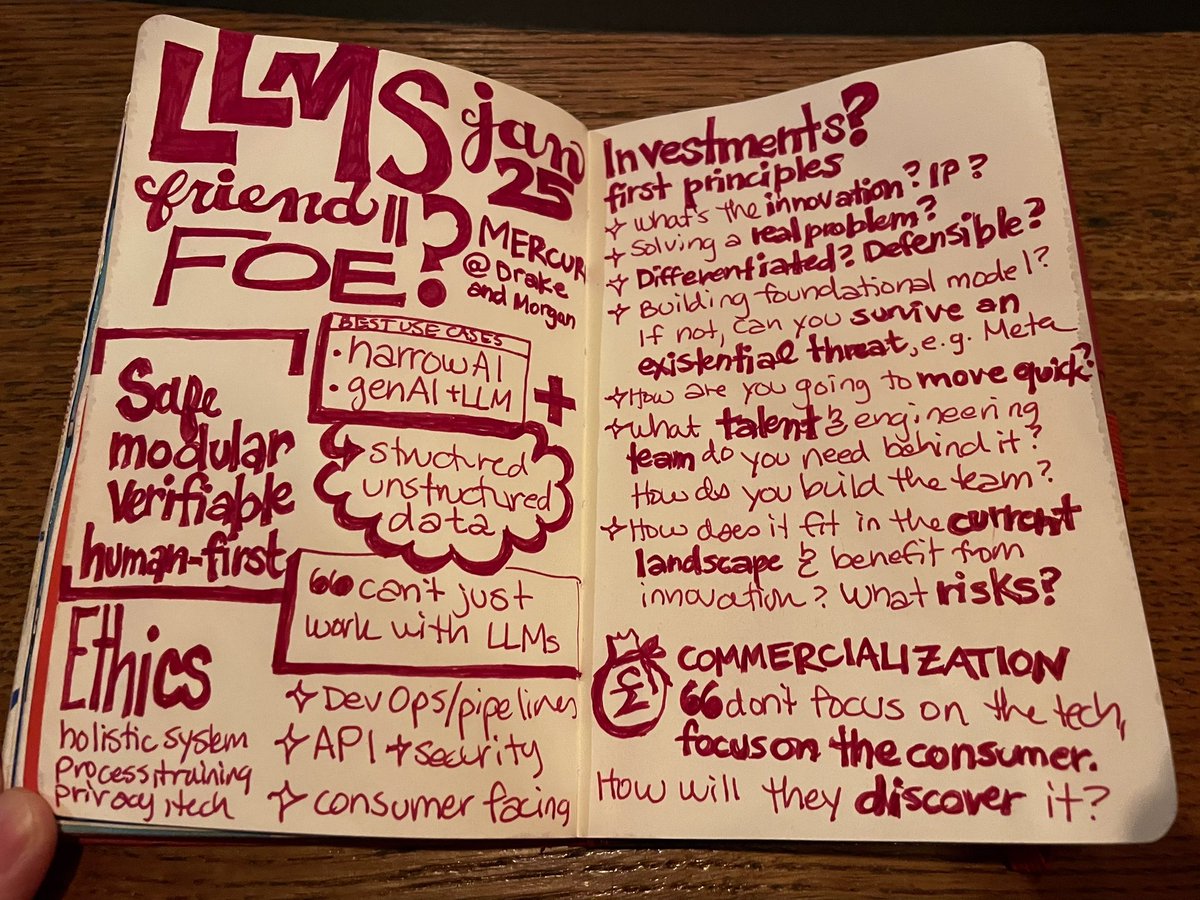 LLMS
jan
25
friend ||
FOE?
MERCURI
@ Drake
and Morgan
BEST USE CASES
• narrow AI
• genAI + LLM
+
structured
unstructured
data
Safe
modular
verifiable
human-first
66 can't just
work with LLMs
Ethics
holistic system
process, training
privacy, tech
✧ DevOps/pipelines
✧ API + security
✧ consumer facing
Investments?
first principles
✧ What's the innovation? IP?
✧ Solving a real problem?
✧ Differentiated? Defensible?
✧ Building foundational model?
If not, can you survive an
existential threat, e.g. Meta
✧ How are you going to move quick?
✧ What talent & engineering
team do you need behind it?
How do you build the team?
✧ How does it fit in the current
landscape & benefit from
innovation? What risks?
£
COMMERCIALIZATION
66 don't focus on the tech,
focus on the consumer.
How will they discover it?